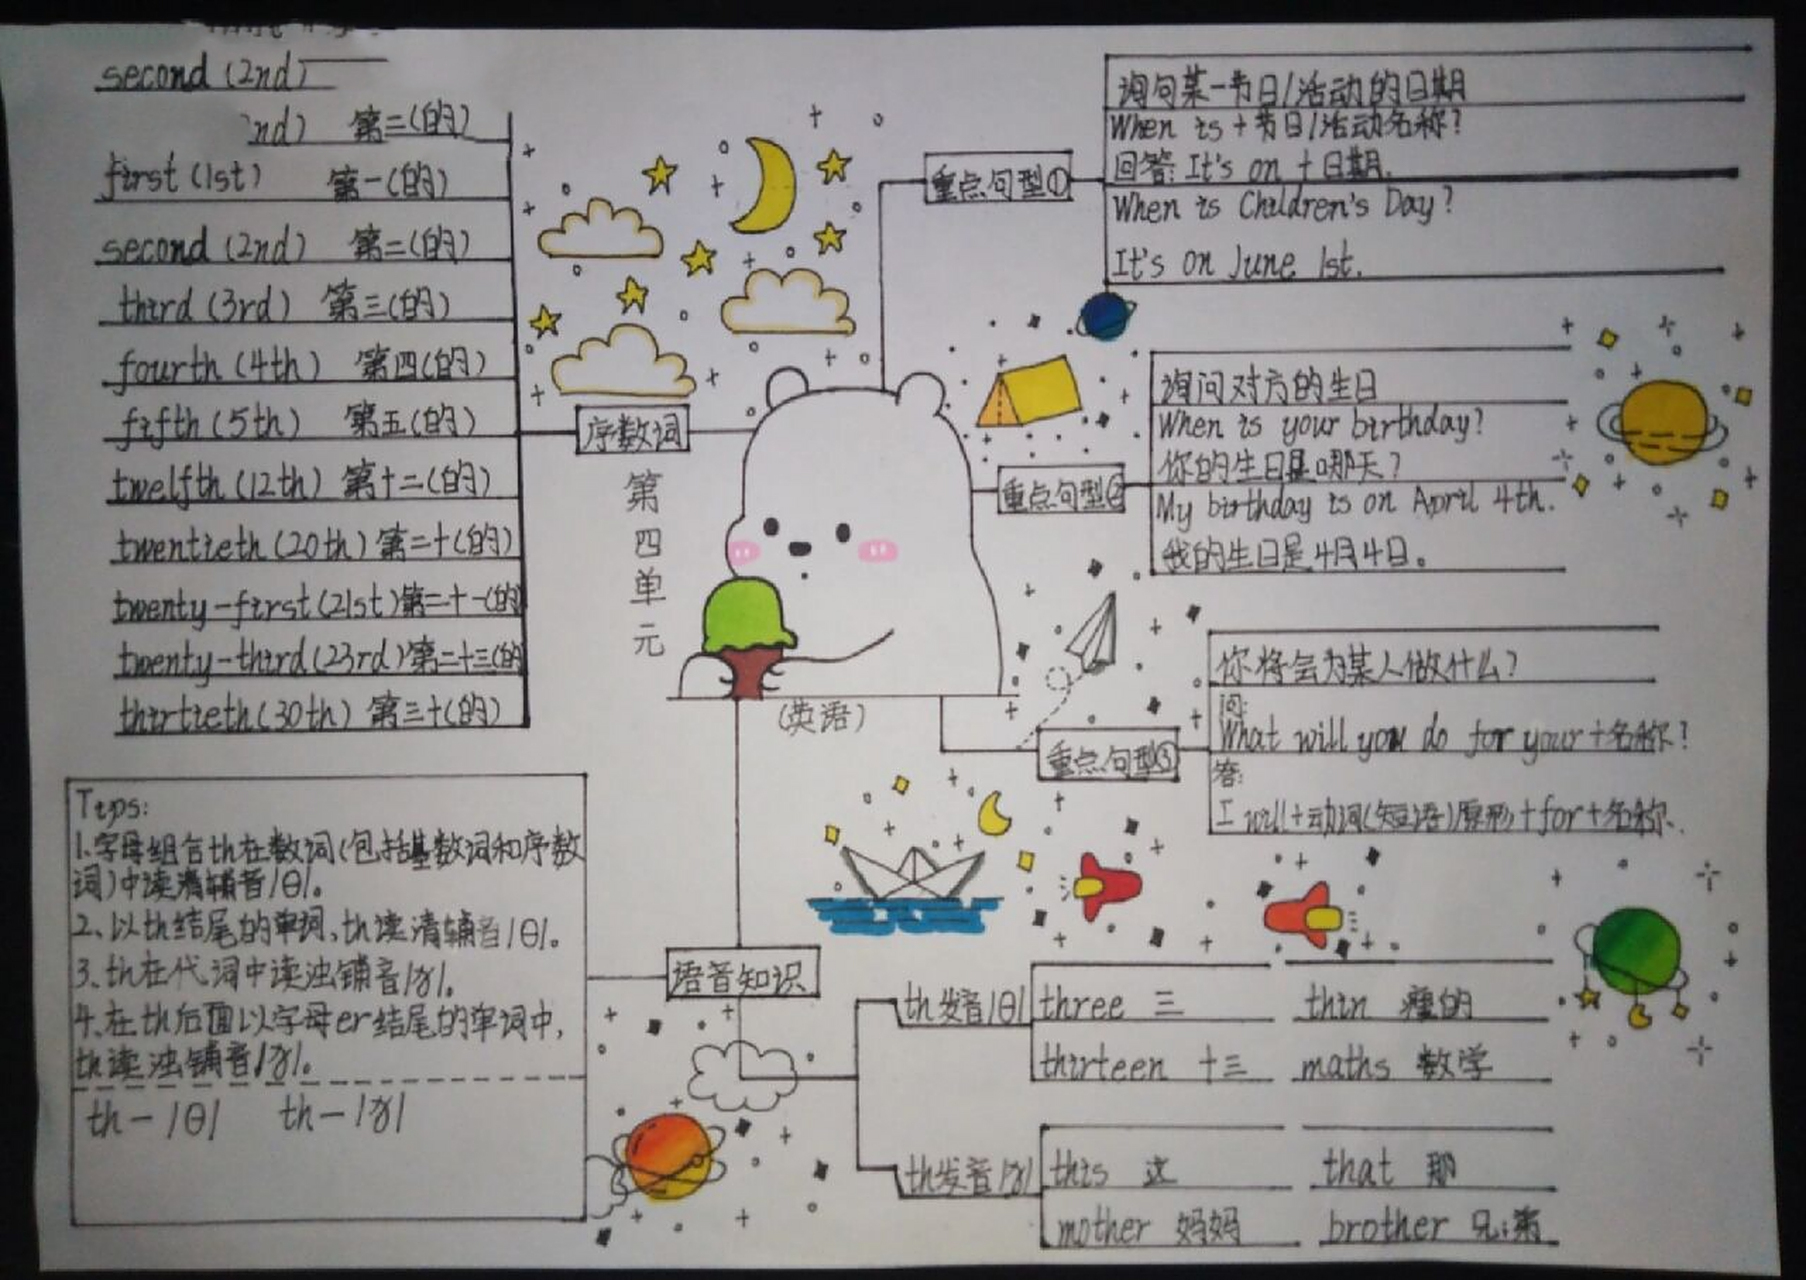 second (2nd)
nd) 第二(的)
first (1st) 第一(的)
second (2nd) 第二(的)
third (3rd) 第三(的)
fourth (4th) 第四(的)
fifth (5th) 第五(的)
twelfth (12th) 第十二(的)
twentieth (20th) 第二十(的)
twenty-first (21st) 第二十一(的
twenty-third (23rd) 第二十三(的
thirtieth (30th) 第三十(的)
序数词
第四单元
(英语)
重点句型①
询句某一节日/活动的日期
When is + 节日/活动名称?
回答: It's on + 日期.
When is Children's Day?
It's on June 1st.
重点句型②
询问对方的生日
When is your birthday?
你的生日是哪天?
My birthday is on April 4th.
我的生日是4月4日。
重点句型③
你将会为某人做什么?
问:
What will you do for your + 名称?
答:
I will + 动词(短语)原形 + for + 名称.
Tips:
1.字母组合th在数词(包括基数词和序数
词)中读清辅音/θ/。
2、以th结尾的单词,th读清辅音/θ/。
3、th在代词中读浊辅音/ð/。
4、在th后面以字母er结尾的单词中,
th读浊辅音/ð/。
th-/θ/ th-/ð/
语音知识
th发音/θ/
three 三 thin 瘦的
thirteen 十三 maths 数学
th发音/ð/
this 这 that 那
mother 妈妈 brother 兄弟